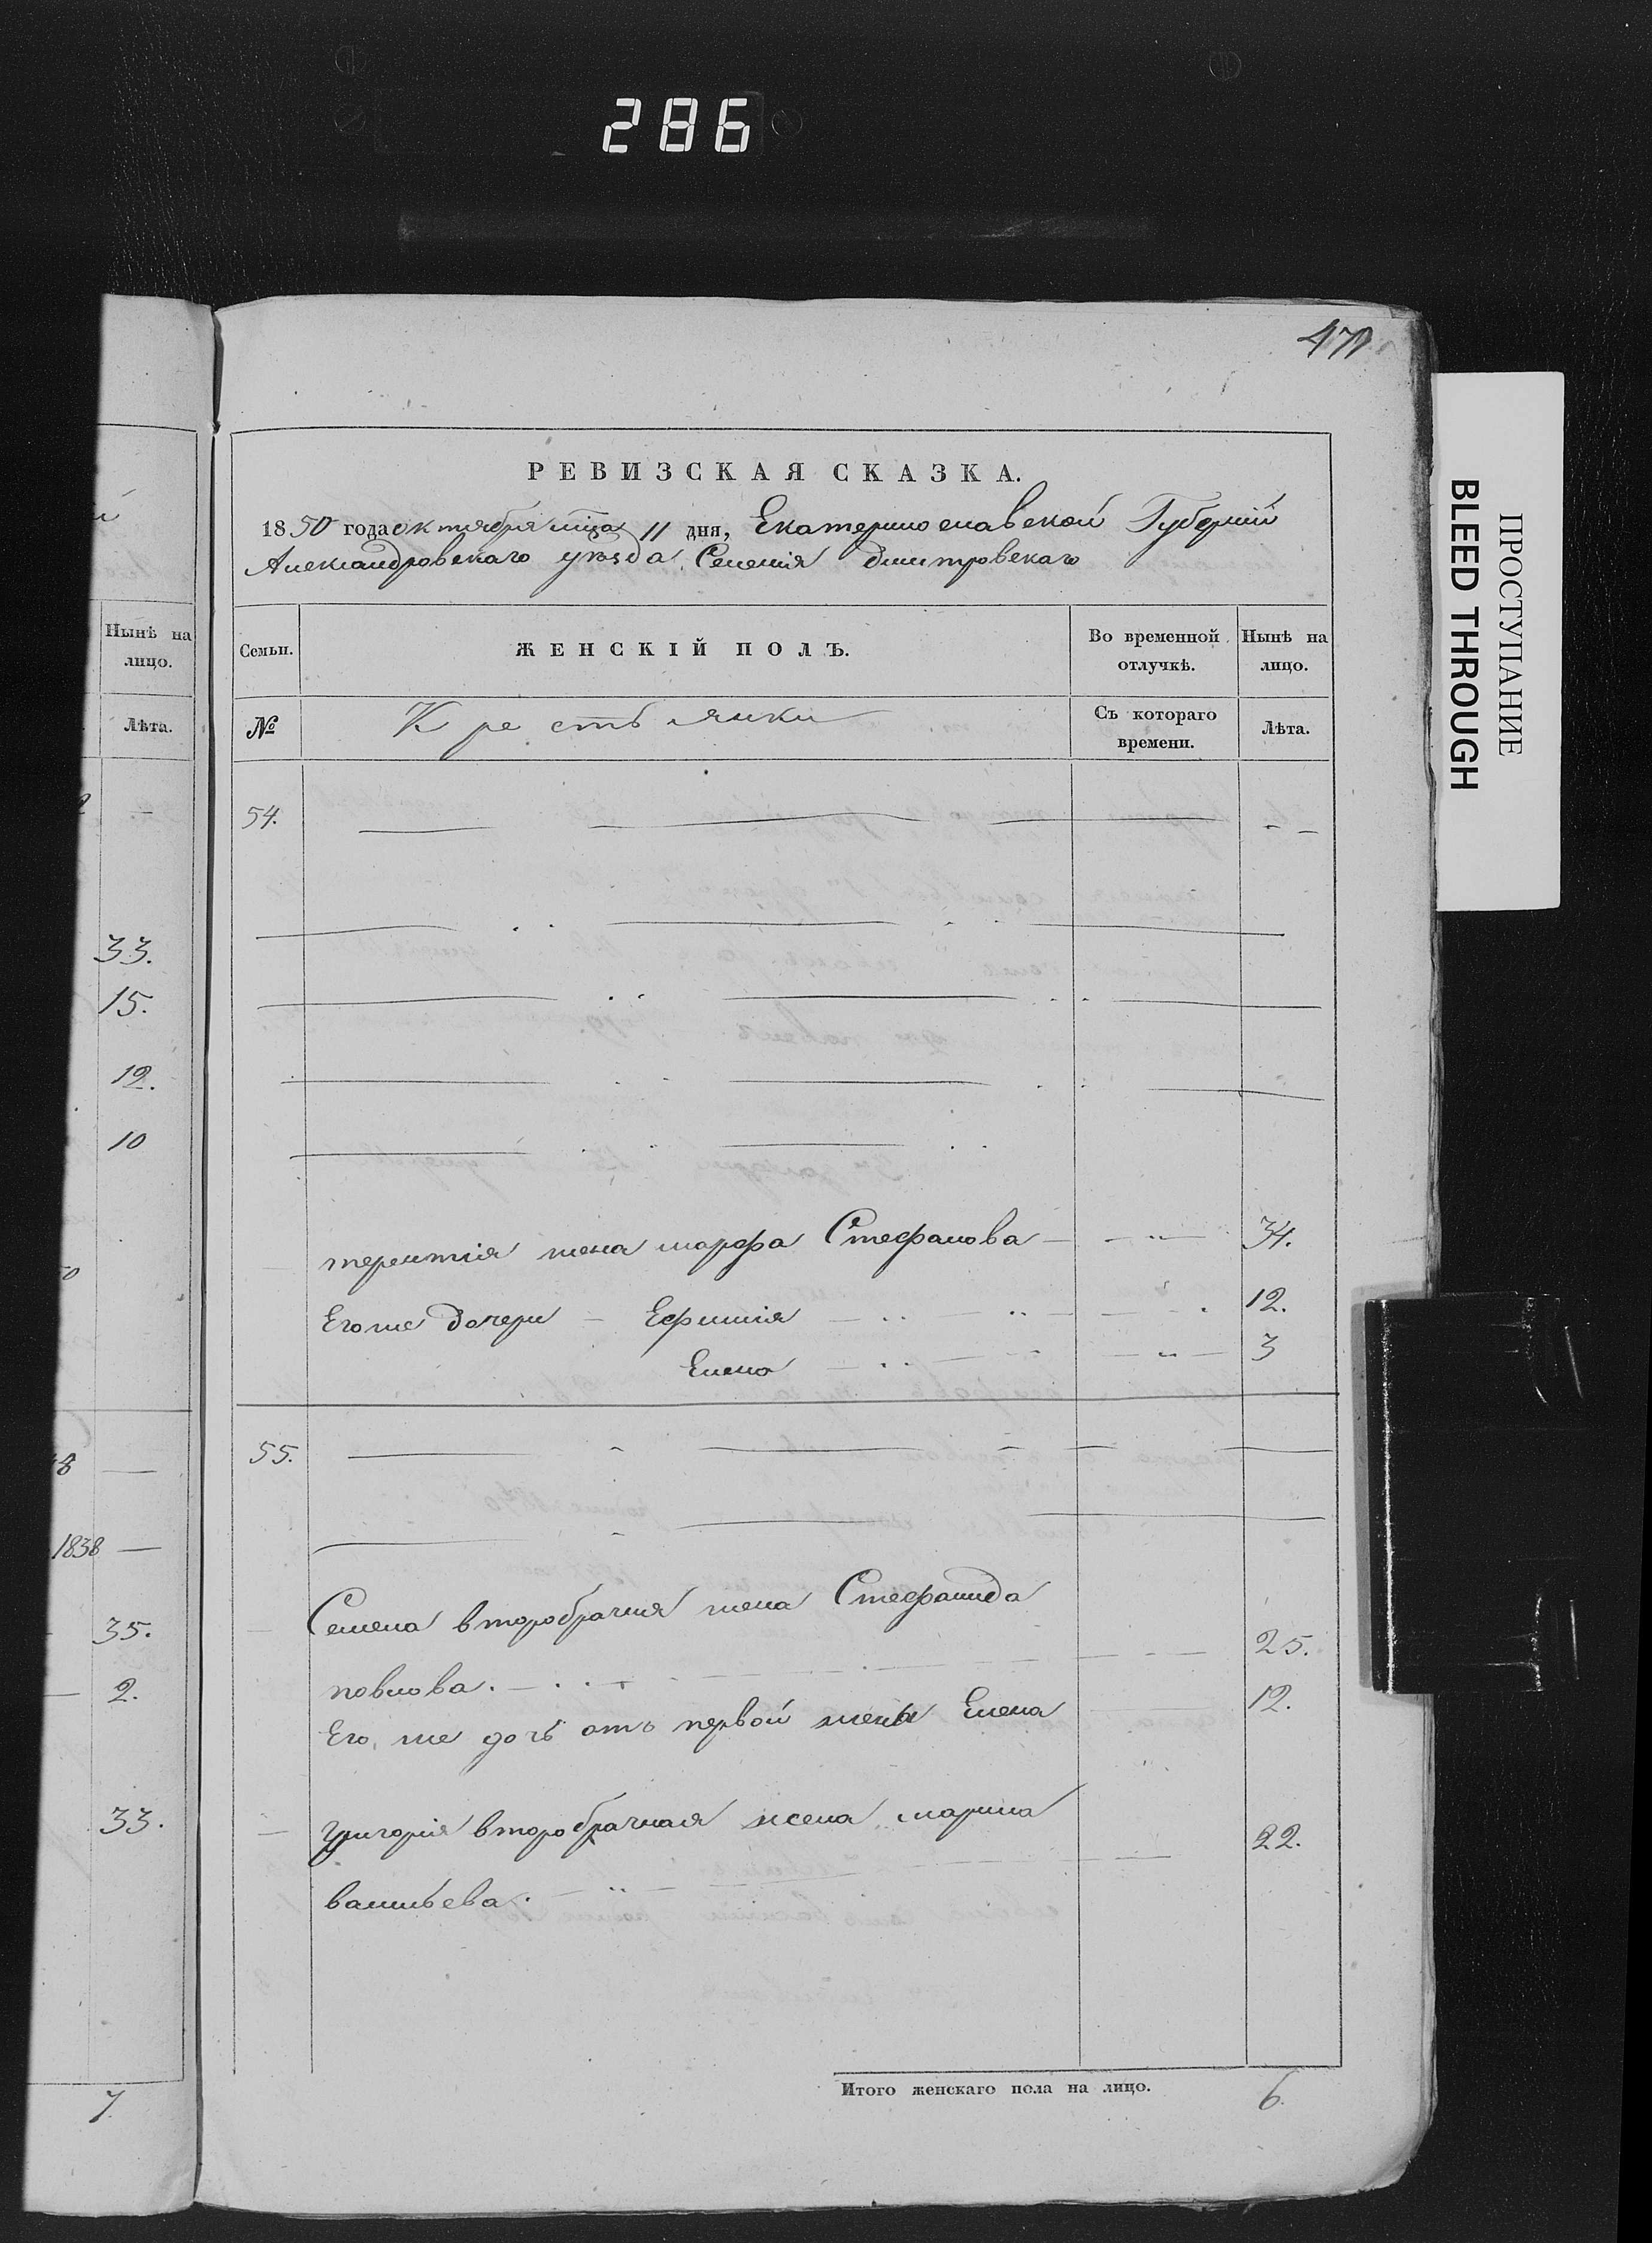 286
471
РЕВИЗСКАЯ СКАЗКА.
1850 года октября мца 11 дня, Екатеринославской Губернии
Александровскаго уѣзда, Селенія Дмитровскаго
Нынѣ на
лицо.
Лѣта.
Семьи.
ЖЕНСКІЙ ПОЛЪ.
Во временной отлучкѣ.
Нынѣ на лицо.
№
Крестьянки
Съ котораго времени.
Лѣта.
54.
33.
15.
12.
10
терентия жена марфа Стефанова 34.
Егоже дочери Ефимия 12.
Елена 3
55.
1838
35.
2.
33.
7.
Семена второбрачня жена Стефанида
павлова. 25.
Его, же дочь отъ первой жены Елена 12.
григория второбрачная жена марина
васильева. 22.
Итого женскаго пола на лицо. 6.
ПРОСТУПАНИЕ
BLEED THROUGH